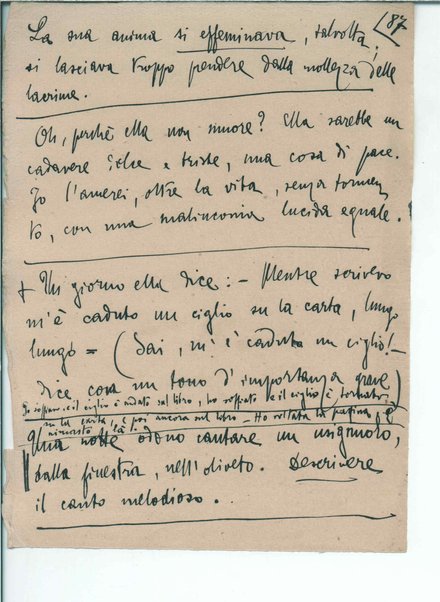 87
La sua anima si effeminava, talvolta;
si lasciava troppo prendere dalla mollezza delle
lacrime.
Oh, perché ella non muore? Ella sarebbe un
cadavere dolce e triste, una cosa di pace.
Io l'amerei, oltre la vita, senza tormen
to, con una malinconia lucida eguale.
+ Un giorno ella dice: – Mentre scrivevo
m'è caduto un ciglio su la carta, lungo
lungo = (Sai, m'è caduto un ciglio! –
dice con un tono d'importanza grave)
Io soffiavo e il ciglio è andato sul libro, ho soffiato e il ciglio è tornato
su la carta, e poi ancora sul libro – Ho voltata la pagina, e
rimasto là.
Una notte odono cantare un usignuolo,
dalla finestra, nell'oliveto. Descrivere
il canto melodioso. –